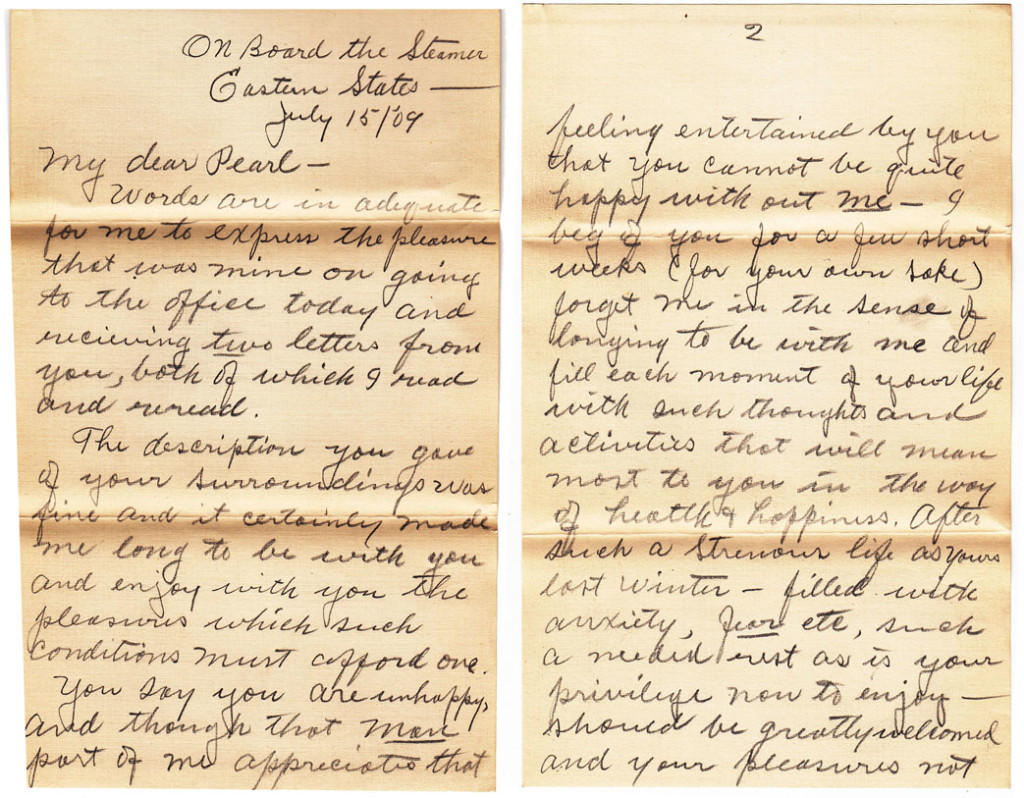 On Board the Steamer
Eastern States —
July 15/09
My dear Pearl —
Words are in adequate
for me to express the pleasure
that was mine on going
to the office today and
recieving two letters from
you, both of which I read
and reread.
The description you gave
of your surroundings was
fine and it certainly made
me long to be with you
and enjoy with you the
pleasures which such
conditions must afford one.
You say you are unhappy,
and though that man
part of me appreciates that
2
feeling entertained by you
that you cannot be quite
happy with out me — I
beg of you for a few short
weeks (for your own sake)
forget me in the sense of
longing to be with me and
fill each moment of your life
with such thoughts and
activities that will mean
most to you in the way
of health & happiness. After
such a strenour life as yours
last winter — filled with
anxiety, fear etc, such
a needed rest as is your
privilege now to enjoy —
should be greatly welcomed
and your pleasures not